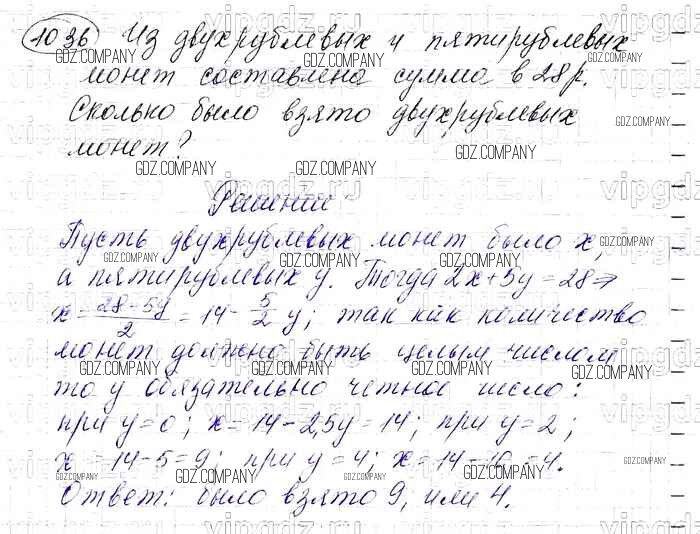 1036 Из двухрублевых и пятирублевых
монет составлена сумма в 28р.
Сколько было взято двухрублевых
монет?
Решение
Пусть двухрублевых монет было x,
а пятирублевых y. Тогда 2x+5y=28⇒
x=28-5y/2=14-5/2y; так как количество
монет должно быть целым числом
то y обязательно четное число:
при y=0; x=14-2,5y=14; при y=2;
x=14-5=9; при y=4; x=14-10=4.
Ответ: было взято 9, или 4.
GDZ.COMPANY
vipgdz.ru